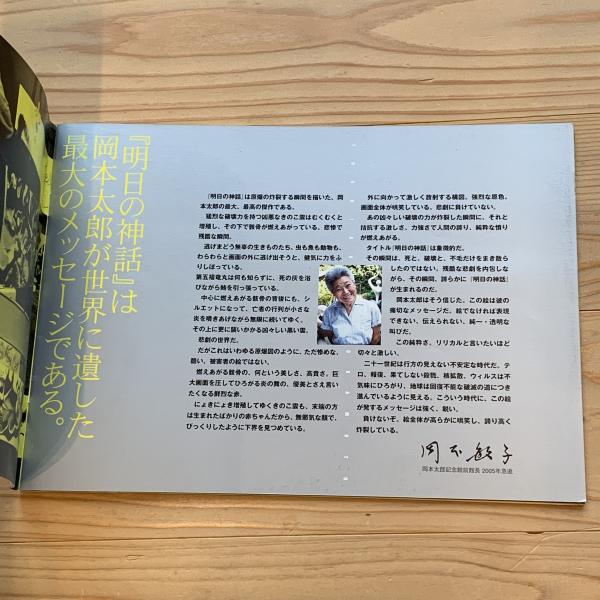 『明日の神話』は
岡本太郎が世界に遺した
最大のメッセージである。
『明日の神話』は原爆の炸裂する瞬間を描いた、岡
本太郎の最大、最高の傑作である。
猛烈な破壊力を持つ凶悪なきのこ雲はむくむくと
増殖し、その下で骸骨が燃えあがっている。悲惨で
残酷な瞬間。
逃げまどう無辜の生きものたち。虫も魚も動物も、
わらわらと画面の外に逃げ出そうと、健気に力をふ
りしぼっている。
第五福竜丸は何も知らずに、死の灰を浴
びながら鮪を引っ張っている。
中心に燃えあがる骸骨の背後にも、シ
ルエットになって、亡者の行列が小さな
炎を噴きあげながら無限に続いてゆく。
その上に更に襲いかかる凶々しい黒い雲。
悲劇の世界だ。
だがこれはいわゆる原爆図のように、ただ惨めな、
酷い、被害者の絵ではない。
燃えあがる骸骨の、何という美しさ、高貴さ。巨
大画面を圧してひろがる炎の舞の、優美とさえ言い
たくなる鮮烈な赤。
にょきにょき増殖してゆくきのこ雲も、末端の方
は生まれたばかりの赤ちゃんだから、無邪気な顔で、
びっくりしたように下界を見つめている。
外に向かって激しく放射する構図。強烈な原色。
画面全体が哄笑している。悲劇に負けていない。
あの凶々しい破壊の力が炸裂した瞬間に、それと
拮抗する激しさ、力強さで人間の誇り、純粋な憤り
が燃えあがる。
タイトル『明日の神話』は象徴的だ。
その瞬間は、死と、破壊と、不毛だけをまき散ら
したのではない。残酷な悲劇を内包しな
がら、その瞬間、誇らかに『明日の神話』
が生まれるのだ。
岡本太郎はそう信じた。この絵は彼の
痛切なメッセージだ。絵でなければ表現
できない、伝えられない、純一・透明な
叫びだ。
この純粋さ。リリカルと言いたいほど
切々と激しい。
二十一世紀は行方の見えない不安定な時代だ。テ
ロ、報復、果てしない殺戮、核拡散、ウィルスは不
気味にひろがり、地球は回復不能な破滅の道につき
進んでいるように見える。こういう時代に、この絵
が発するメッセージは強く、鋭い。
負けないぞ。絵全体が高らかに哄笑し、誇り高く
炸裂している。
岡本敏子
岡本太郎記念館前館長 2005年急逝